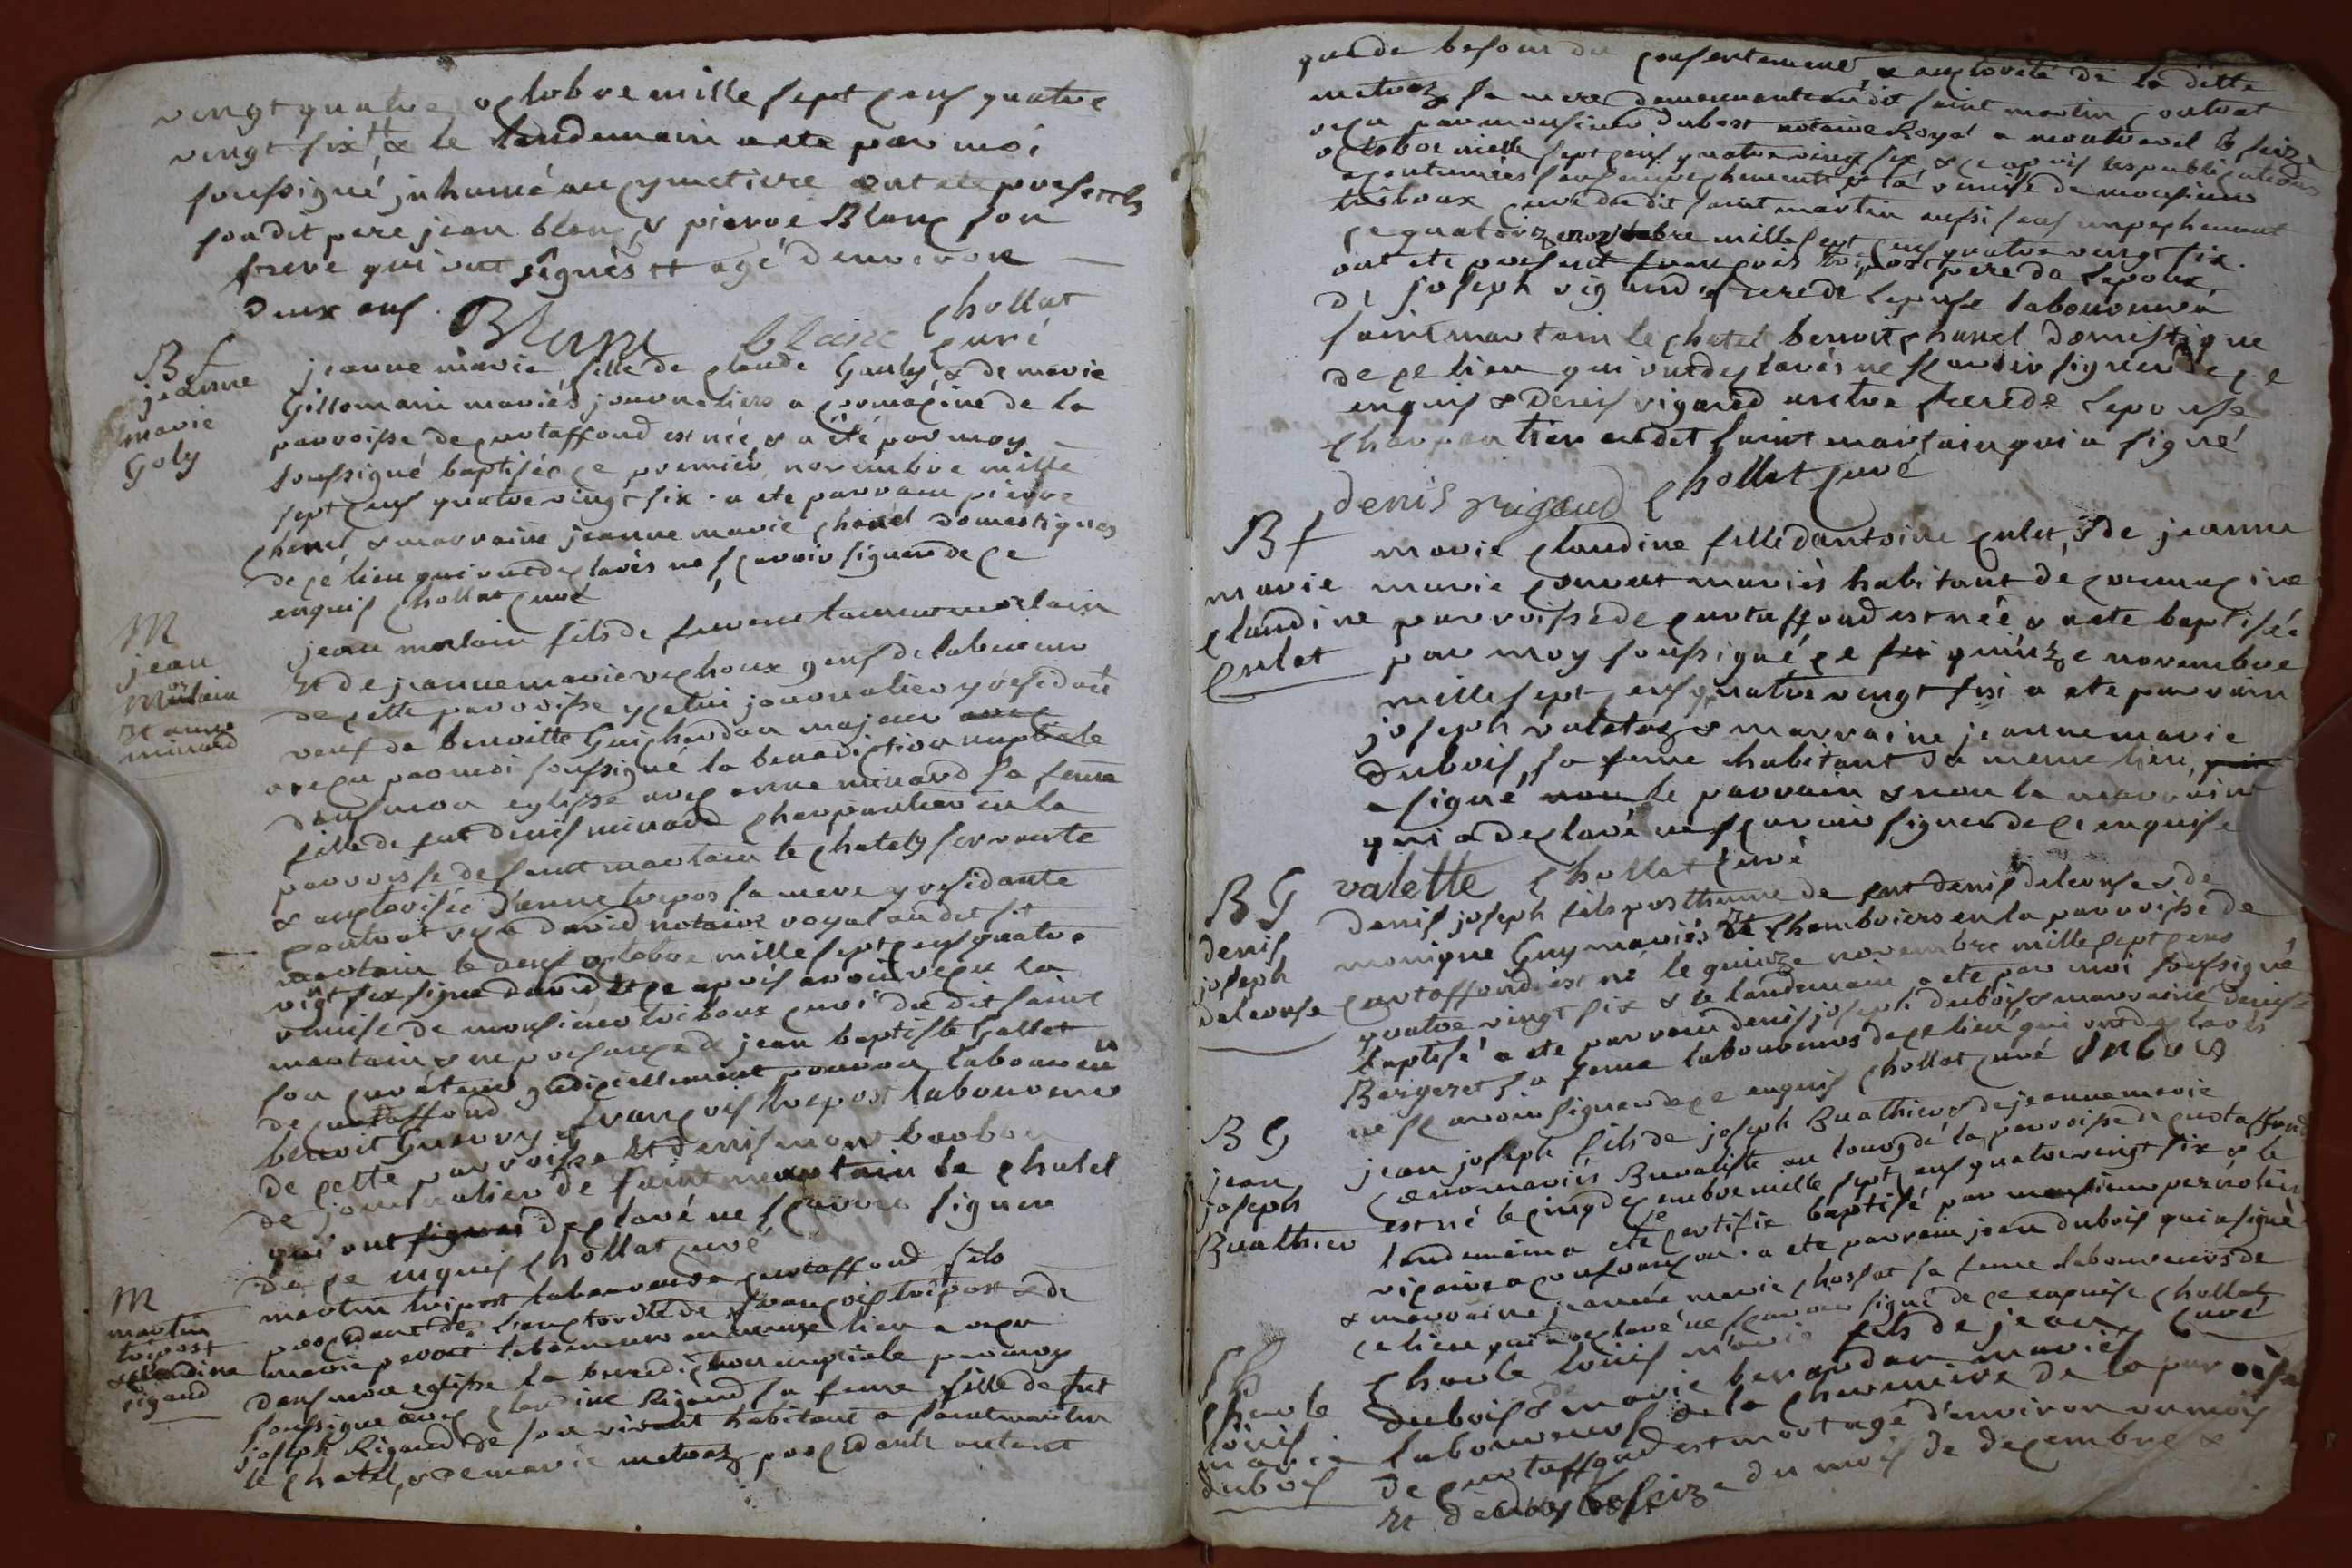 vingt quatre octobre mille sept cens quatre
vingt six, & le lendemain a ete par moi
soussigné inhumé au cymetiere ont ete presents
son dit pere jean blanc & pierre Blanc son
frere qui ont signés et agé d'environ
deux ans. Blanc blanc chollat
curé
B f
jeanne
marie
Goly
jeanne marie fille de claude Gauly & de marie
Gillomain mariés journaliers a cormacine de la
parroisse de curtaffond est née & a été par moy
soussigné baptisée ce premier novembre mille
sept cens quatre vingt six. a ete parrain pierre
chanel & marraine jeanne marie chanel domestiques
de ce lieu qui ont declarés ne sçavoir signer de ce
enquis chollat curé
M
jean
Morlain
et anne
minard
jean morlain fils de morlain
et de jeanne marie vechoux gens de laboureur
de cette parroisse ycelui journalier y residant
veuf de benoitte Guichardan majeur
a reçu par moi soussigné la benediction nuptiale
dans mon eglise avec anne minard sa feme
fille de fut denis minard charpantier en la
parroisse de saint martain le chatel y servante
& authorisée d'anne trepos sa mere y residante
contrat reçu david notaire royal au dit st
martain le neuf octobre mille sept cens quatre
vingt six signé david et ce apris avoir reçu la
remise de monsieur triboux curé du dit saint
martain & en presence de jean baptiste Gallet
son curateur judiciellement laboureur
de curtaffond
benoit Guerry & françois trepost laboureurs
de cette parroisse et denis mon barbon
de journalier de saint martain le chatel
qui ont declaré ne sçavoir signer
de ce enquis chollat curé
M
martin
tripost
& claudine
rigaud
martin tripost laboureur a curtaffond fils
procedant de l'authorité de françois tripost & de
marie perrat laboureur au meme lieu a reçu
dans mon eglise la benediction nuptiale par moy
soussigné avec claudine Rigaud sa feme fille de fut
joseph Rigaud de son vivant habitant a saint martin
le chatel, & de marie metraz procedante autant
que de besoin du consentement & authorité de la ditte
metraz sa mere demeurante au dit saint martin contrat
reçu par monsieur dubost notaire Royal a montrevel le seize
octobre mille sept cens quatre vingt six & ce apris les publications
acoutumées sans empechement & la remise de monsieur
triboux curé du dit saint martin aussi sans empechement
ce quatorze novembre mille sept cens quatre vingt six.
ont ete present françois tripost pere de l'epoux
& joseph rigaud frere de l'epouse laboureur a
saint martain le chatel benoit chanel domestique
de ce lieu qui ont declarés ne sçavoir signer de ce
enquis & denis rigaud autre frere de l'epouse
charpantier au dit saint martain qui a signé
denis rigaud chollat curé
B f
marie
claudine
culet
marie claudine fille d'antoine culet, & de jeanne
marie convert mariés habitant de cormacine
parroisse de curtaffond est née & a ete baptisée
par moy soussigné ce quinze novembre
mille sept cens quatre vingt six a ete parrain
joseph valette & marraine jeanne marie
dubois, sa feme habitant du meme lieu,
a signé le parrain & non la marraine
qui a declaré ne sçavoir signer de ce enquise
valette chollat curé
B G
denis
joseph
delorse
denis joseph fils posthume de fut denis delorse & de
monique Guy mariés et chambriers en la parroisse de
curtaffond est né le quinze novembre mille sept cens
quatre vingt six & le landemain a ete par moi soussigné
baptisé a ete parrain denis joseph dubois & marraine denise
Bergeret sa feme laboureurs de ce lieu qui ont declarés
ne sçavoir signer de ce enquis chollat curé
B G
jean
joseph
Buathier
jean joseph fils de joseph Buathier & de jeanne marie
mariés Buraliste au bourg de la parroisse de curtaffond
est né le cinq decembre mille sept cens quatre vingt six & le
landemain a ete je certifie baptisé par monsieur
vicaire a confrançon. a ete parrain jean dubois qui a signé
& marraine jeanne marie chossat sa feme laboureurs de
ce lieu qui a declaré ne sçavoir signé de ce enquise chollat
curé
charle
louis
marie
dubois
charle louis marie fils de jean
dubois & de marie berardan mariés
laboureurs de la charmeire de la parroisse
de curtaffond est mort agé d'environ un mois
et demy le seize du mois de decembre &